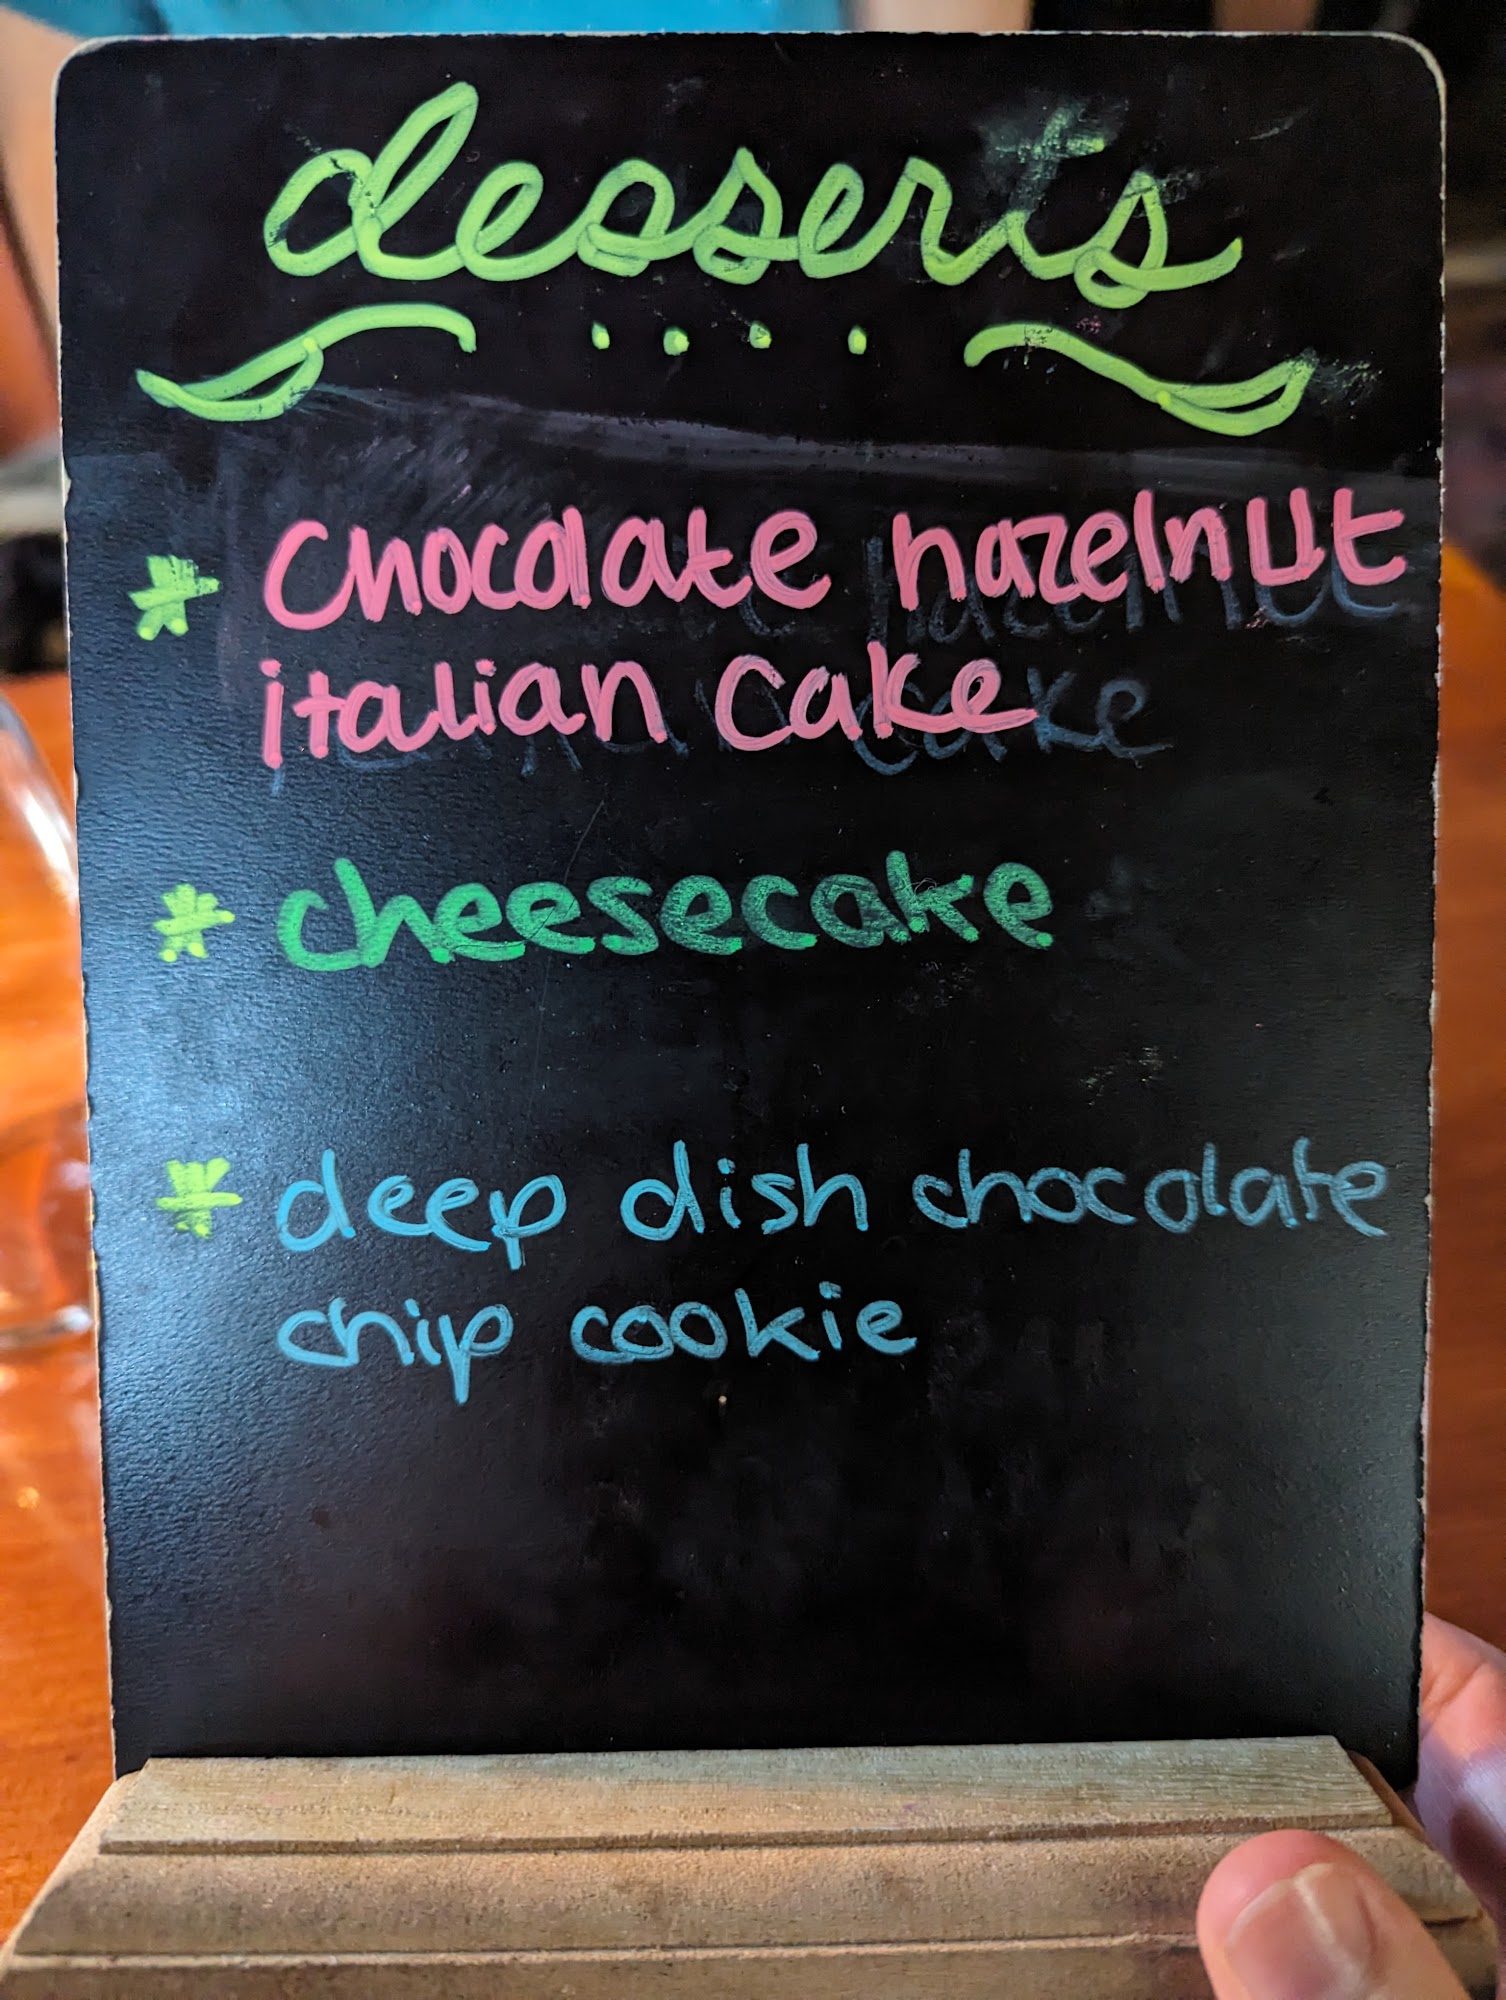 desserts
* Chocolate hazelnut
italian cake
* cheesecake
* deep dish chocolate
chip cookie